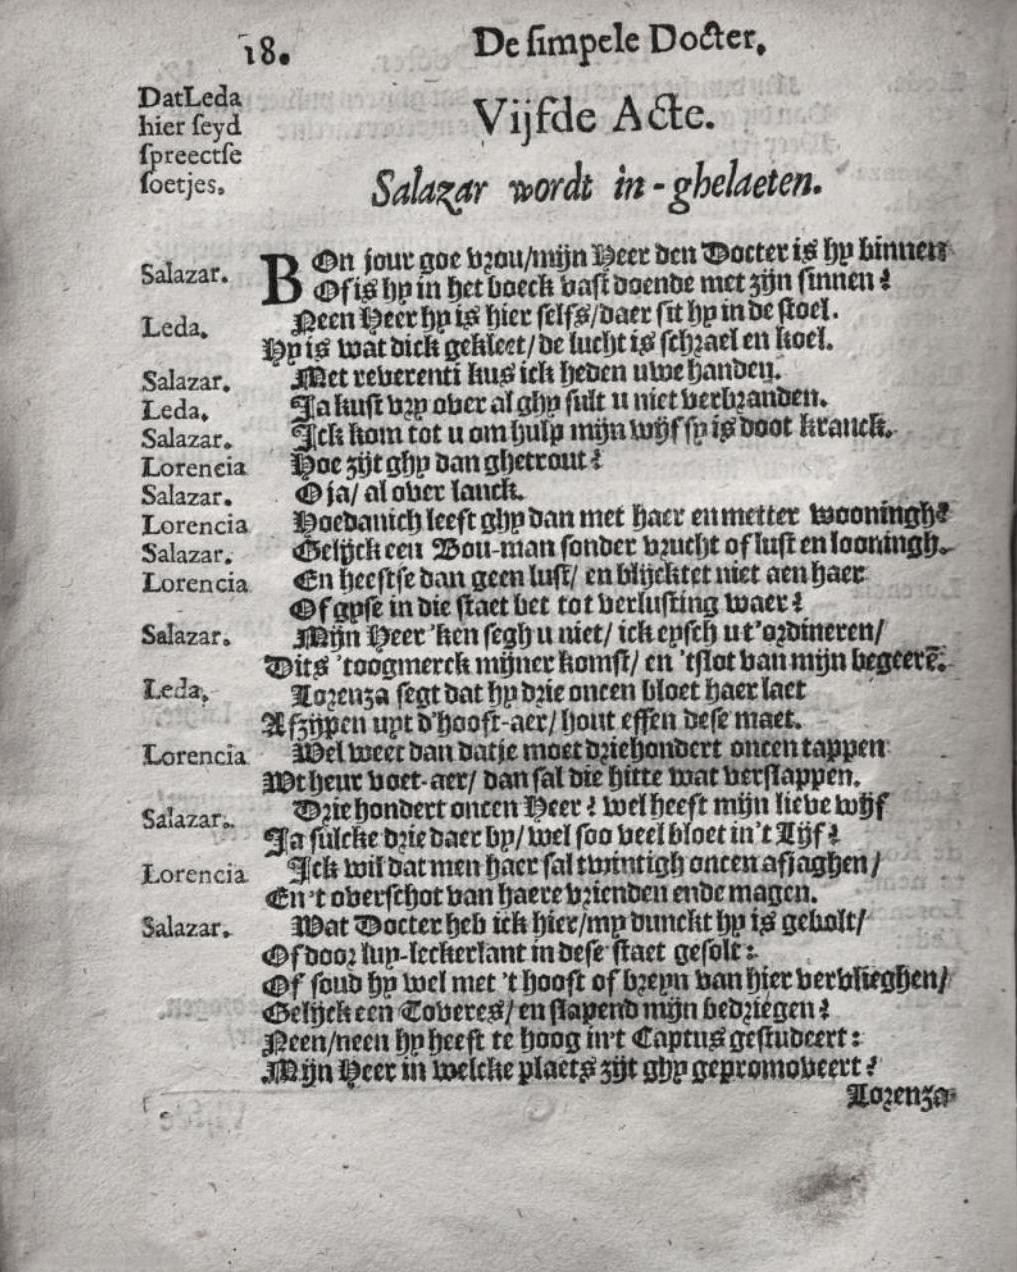 18. De simpele Docter.
DatLeda
hier seyd
spreectse
soetjes.
Vijfde Acte.
Salazar wordt in-ghelaeten.
Salazar. BOn jour goe vrou/mijn Heer den Docter is hy binnen
Of is hy in het boeck vast doende met zijn sinnen?
Leda. Neen Heer hy is hier selfs/daer sit hy in de stoel.
Hy is wat dick gekleet/de lucht is schrael en koel.
Salazar. Met reverenti kus ick heden uwe handen.
Leda. Ja kust vry over al ghy sult u niet verbranden.
Salazar. Ick kom tot u om hulp mijn wijf sy is doot kranck.
Lorencia Hoe zijt ghy dan ghetrout?
Salazar. O ja/ al over lanck.
Lorencia Hoedanich leeft ghy dan met haer en metter wooningh?
Salazar. Gelijck een Bou-man sonder vrucht of lust en looningh.
Lorencia En heeftse dan geen lust/ en blijcktet niet aen haer
Of gyse in die staet bet tot verlusting waer?
Salazar. Mijn Heer 'ken segh u niet/ ick eysch u t'ordineren/
Dits 'toogmerck mijner komst/ en 'tslot van mijn begeerē.
Leda. Lorenza segt dat hy drie oncen bloet haer laet
Afzijpen uyt d'hooft-aer/ hout effen dese maet.
Lorencia Wel weet dan datje moet driehondert oncen tappen
Wt heur voet-aer/ dan sal die hitte wat verslappen.
Salazar. Drie hondert oncen Heer? wel heeft mijn lieve wijf
Ja sulcke drie daer by/ wel soo veel bloet in't Lijf?
Lorencia Ick wil dat men haer sal twintigh oncen afjaghen/
En 't overschot van haere vrienden ende magen.
Salazar. Wat Docter heb ick hier/my dunckt hy is gebolt/
Of door luy-leckerlant in dese staet gesolt:
Of soud hy wel met 't hooft of breyn van hier vervlieghen/
Gelijck een Toveres/ en slapend mijn bedriegen?
Neen/neen hy heeft te hoog in't Captus gestudeert:
Mijn Heer in welcke plaets zijt ghy gepromoveert?
Lorenza